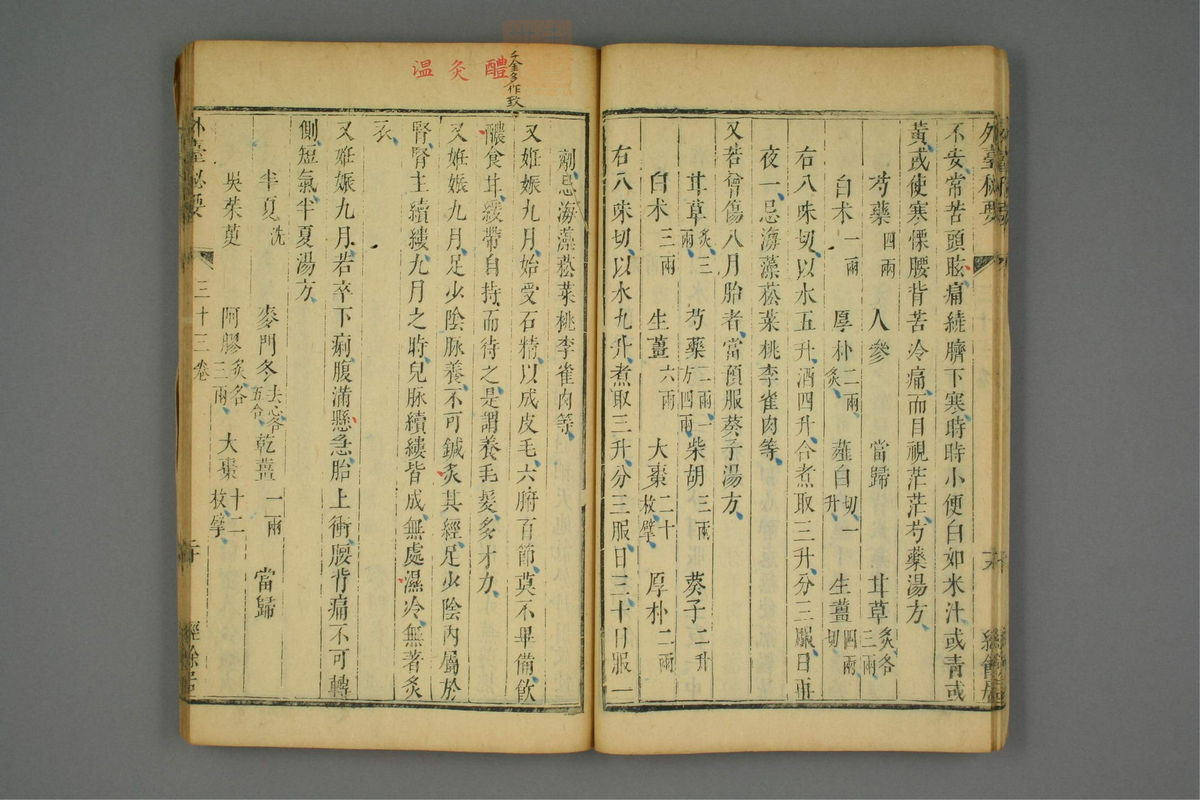 外臺秘要
不安常苦頭眩痛繞臍下寒時時小便白如米汁或青或
黃或使寒慄腰背苦冷痛而目視茫茫芍藥湯方
芍藥四兩 人參 當歸 甘草炙各三兩
白术一兩 厚朴二兩炙 薤白切一升 生薑四兩切
右八味切以水五升酒四升合煮取三升分三服日再
夜一忌海藻菘菜桃李雀肉等
又若曾傷八月胎者當預服葵子湯方
甘草炙三兩 芍藥二兩一方四兩 柴胡三兩 葵子二升
白术三兩 生薑六兩 大棗二十枚擘 厚朴二兩
右八味切以水九升煮取三升分三服日三十日服一
劑忌海藻菘菜桃李雀肉等
又妊娠九月始受石精以成皮毛六腑百節莫不畢備飲
醲食甘緩帶自持而待之是謂養毛髮多才力
又妊娠九月足少陰脉養不可鍼灸其經足少陰內屬於
腎腎主續縷九月之時兒脉續縷皆成無處濕冷無著炙
衣
又妊娠九月若卒下痢腹滿懸急胎上衝腰背痛不可轉
側短氣半夏湯方
半夏洗 麥門冬去心各五合 乾薑一兩 當歸
吳茱萸 阿膠炙各三兩 大棗十二枚擘
外臺秘要 三十三卷 二十 經餘居
千金多作致
醴
灸
温